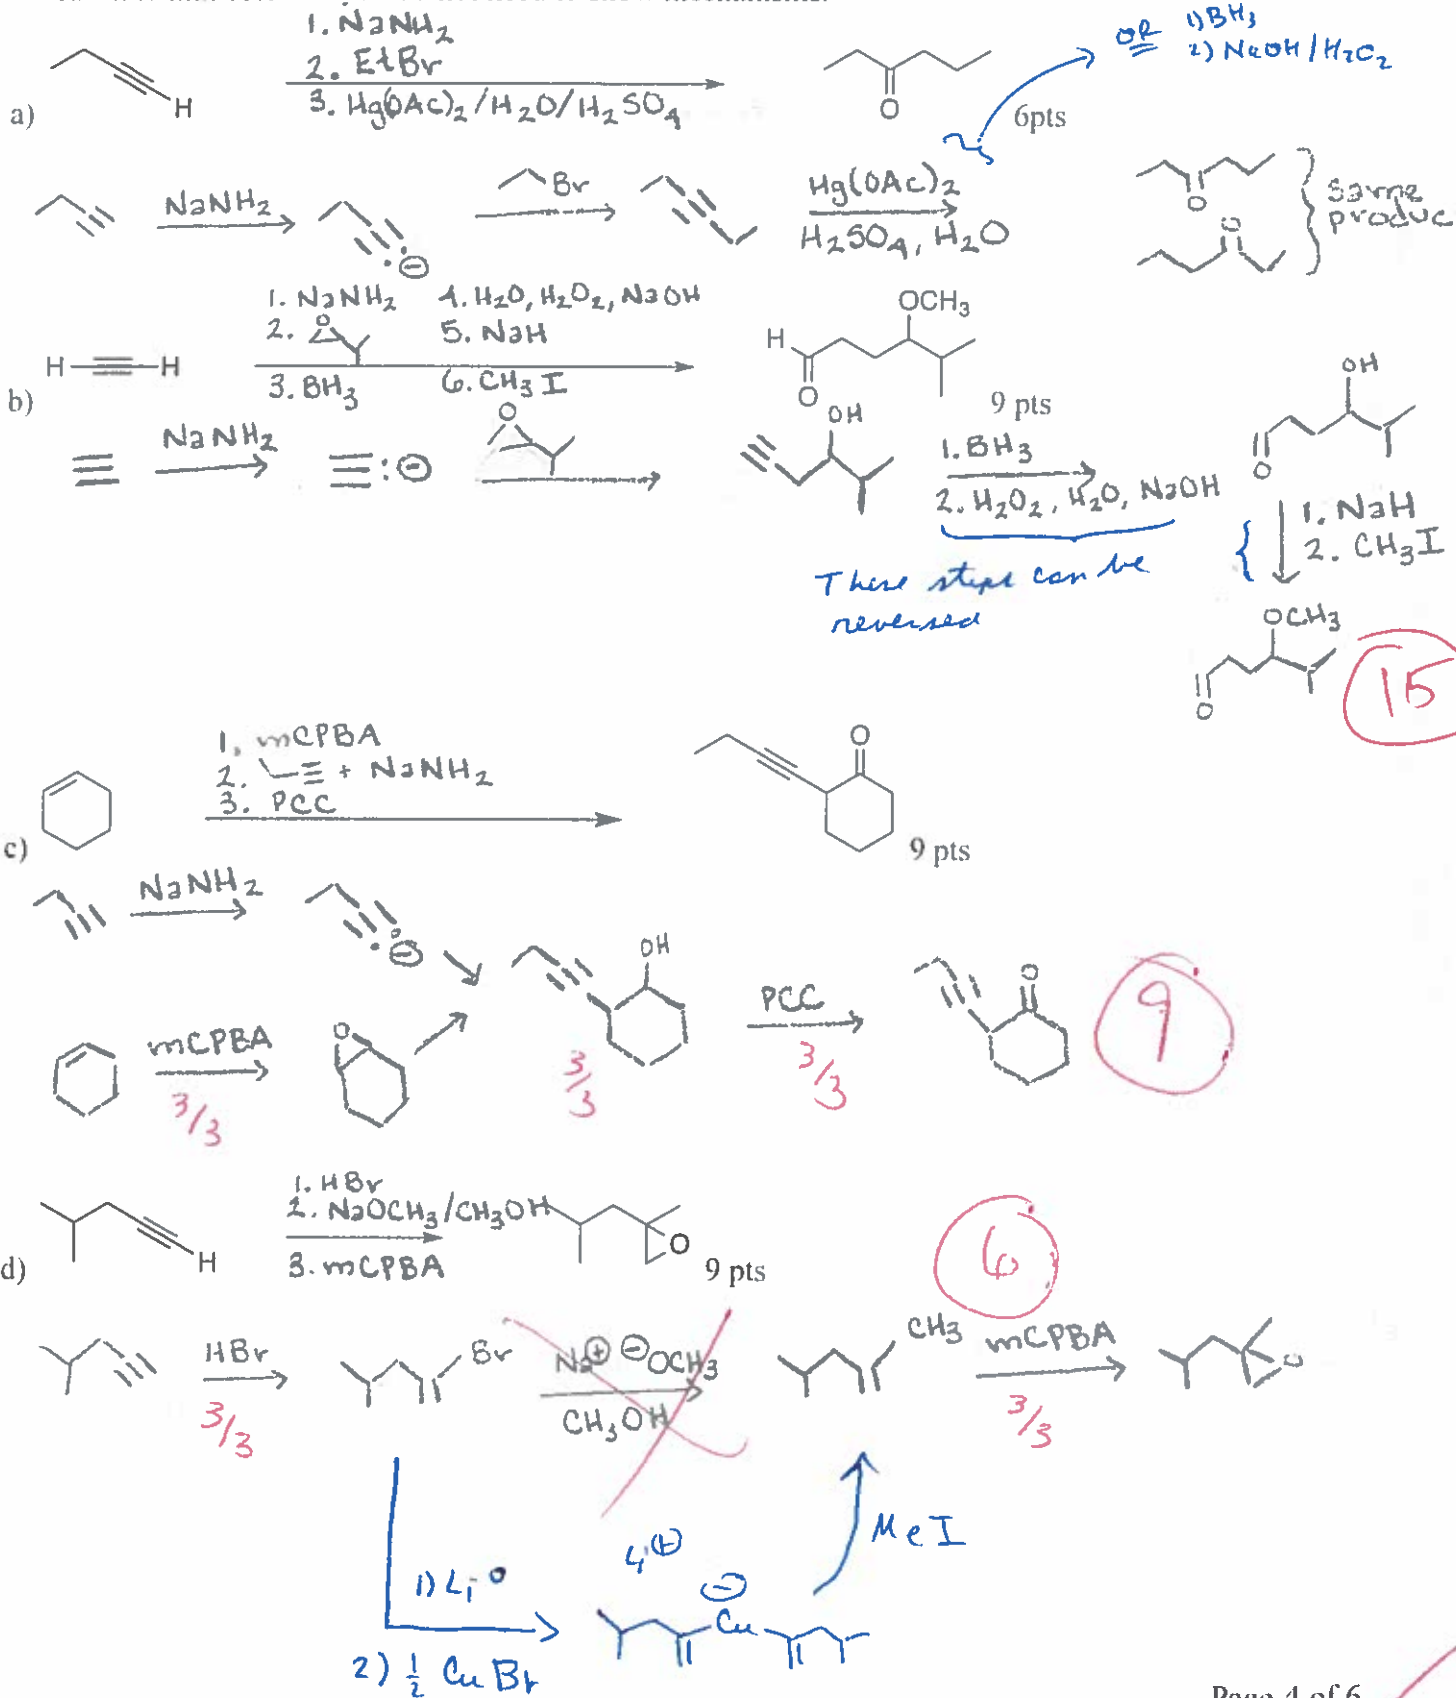 1. NaNH2
2. EtBr
3. Hg(OAc)2/H2O/H2SO4
H
a)
O
6pts
OR 1) BH3
2) NaOH/H2O2
NaNH2
Br
⊖
Hg(OAc)2
H2SO4, H2O
O
O
same
produc
1. NaNH2 4. H2O, H2O2, NaOH
2. O 5. NaH
3. BH3 6. CH3I
H H
b)
OCH3
H
O
9 pts
NaNH2
:⊖
O
OH
1. BH3
2. H2O2, H2O, NaOH
OH
O
1. NaH
2. CH3I
These steps can be
reversed
OCH3
O
15
1. mCPBA
2. + NaNH2
3. PCC
c)
O
9 pts
NaNH2
⊖
mCPBA
3/3
O
OH
3/3
PCC
3/3
O
9
1. HBr
2. NaOCH3/CH3OH
3. mCPBA
H
d)
O
9 pts
6
HBr
3/3
Br
Na⊕ ⊖OCH3
CH3OH
CH3
mCPBA
3/3
O
1) Li°
2) 1/2 CuBr
Li⊕
⊖
Cu
MeI
Page 4 of 6